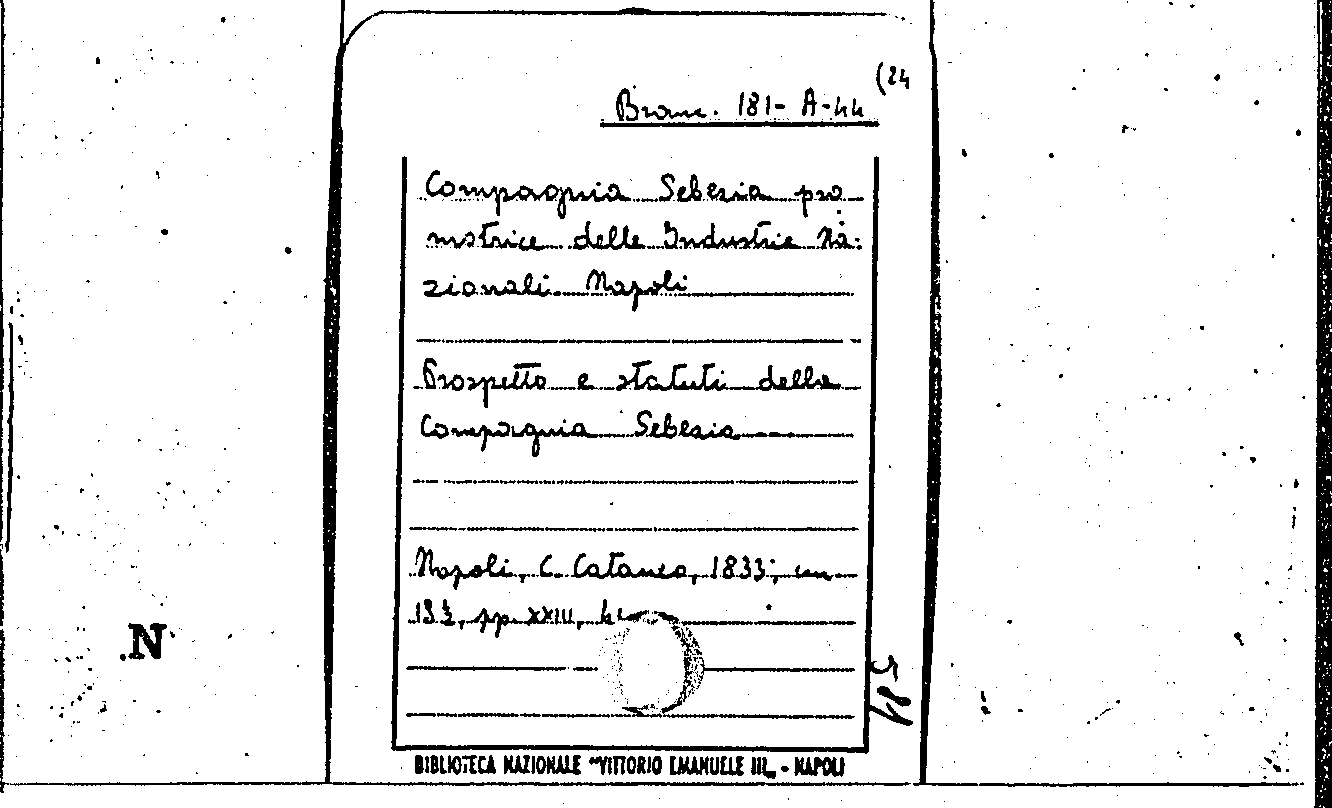 (24
Branc. 181- A-44
Compagnia Sebezia pro
motrice delle Industrie Na:
zionali. Napoli
Prospetto e statuti della
Compagnia Sebezia
Napoli, C. Cataneo, 1833; cm.
19½, pp. XXIII,
N
BIBLIOTECA NAZIONALE "VITTORIO EMANUELE III„ - NAPOLI